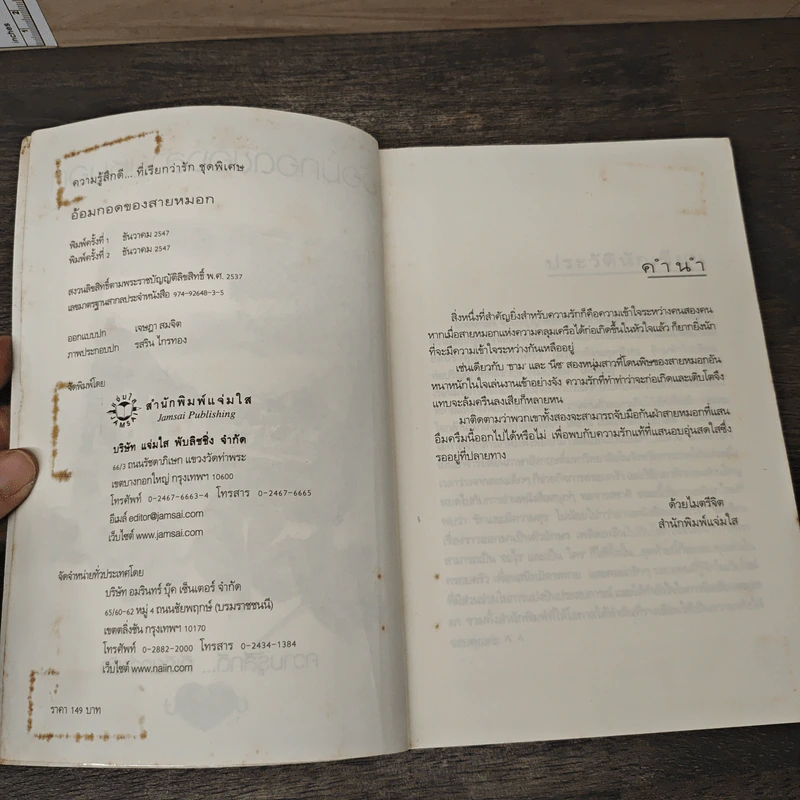 ความรู้สึกดี... ที่เรียกว่ารัก ชุดพิเศษ
อ้อมกอดของสายหมอก
พิมพ์ครั้งที่ 1 ธันวาคม 2547
พิมพ์ครั้งที่ 2 ธันวาคม 2547
สงวนลิขสิทธิ์ตามพระราชบัญญัติลิขสิทธิ์ พ.ศ. 2537
เลขมาตรฐานสากลประจำหนังสือ 974-92648-3-5
ออกแบบปก เจษฎา สมจิต
ภาพประกอบปก รสริน ไกรทอง
จัดพิมพ์โดย
สำนักพิมพ์แจ่มใส
Jamsai Publishing
บริษัท แจ่มใส พับลิชชิ่ง จำกัด
66/3 ถนนรัชดาภิเษก แขวงวัดท่าพระ
เขตบางกอกใหญ่ กรุงเทพฯ 10600
โทรศัพท์ 0-2467-6663-4 โทรสาร 0-2467-6665
อีเมล์ editor@jamsai.com
เว็บไซต์ www.jamsai.com
จัดจำหน่ายทั่วประเทศโดย
บริษัท อมรินทร์ บุ๊ค เซ็นเตอร์ จำกัด
65/60-62 หมู่ 4 ถนนชัยพฤกษ์ (บรมราชชนนี)
เขตตลิ่งชัน กรุงเทพฯ 10170
โทรศัพท์ 0-2882-2000 โทรสาร 0-2434-1384
เว็บไซต์ www.naiin.com
ราคา 149 บาท
คำนำ
สิ่งหนึ่งที่สำคัญยิ่งสำหรับความรักก็คือความเข้าใจระหว่างคนสองคน
หากเมื่อสายหมอกแห่งความคลุมเครือได้ก่อเกิดขึ้นในหัวใจแล้ว ก็ยากยิ่งนัก
ที่จะมีความเข้าใจระหว่างกันเหลืออยู่
เช่นเดียวกับ 'ชาม' และ 'นีช' สองหนุ่มสาวที่โดนพิษของสายหมอกอัน
หนาหนักในใจเล่นงานเข้าอย่างจัง ความรักที่ทำท่าว่าจะก่อเกิดและเติบโตจึง
แทบจะล้มครืนลงเสียก็หลายหน
มาติดตามว่าพวกเขาทั้งสองจะสามารถจับมือกันฝ่าสายหมอกที่แสน
อึมครึมนี้ออกไปได้หรือไม่ เพื่อพบกับความรักแท้ที่แสนอบอุ่นสดใสซึ่ง
รออยู่ที่ปลายทาง
ด้วยไมตรีจิต
สำนักพิมพ์แจ่มใส